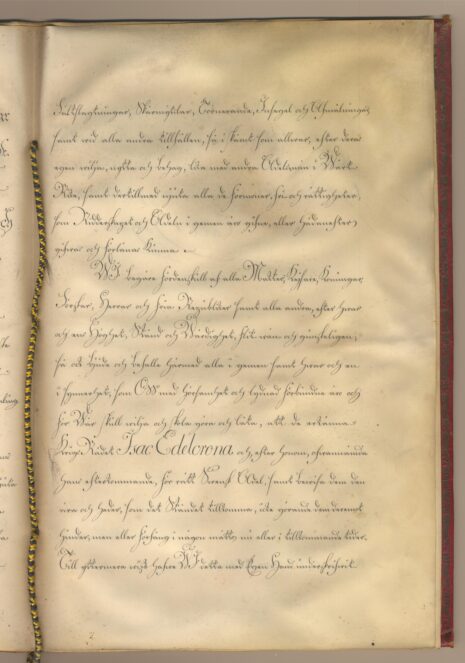 Fältslagtningar, Skärmytslar, Tornerande, Insegel och Afmålningar
samt vid alla andra tillfällen, så i skämt som allvar, efter dera
egen vilja, nytta och behag, lika med andra Adelsmän i Wårt
Rike, samt dertillmed njuta alla de förmoner, fri och rättigheter,
som Ridderskapet och Adeln i gemen äro gifne, eller hädanefter
gifvas och förlänas kunna.
Wi begäre fördenskull af alla Magter, Kejsare, Konungar,
Förstar, Herrar och fria Republiker samt alla andra, efter hvars
och ens Höghet, Stånd och Wärdighet, flit- och gunsteligen,
så ock bjude och befalle härmed alla i gemen samt hvar och en
i synnerhet, som Oss med hörsamhet och lydnad förbundne äro och
för Wår skull vilja och skola göra och låta, att de erkänna
Krigs Rådet Isac Edelcrona och, efter honom, ofvannämnda
hans efterkommande, för rätt Svensk Adel, samt bevisa dem den
ära och heder, som det Ståndet tillkomma, icke görande dem deremot
hinder, men eller förfång i någon måtto nu eller i tillkommande tider.
Till yttermera visso hafve Wi detta med Egen Hand underskrifvit